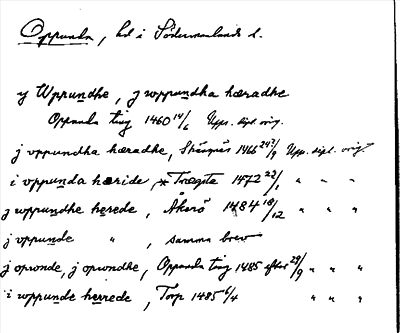 Oppunda, hd i Södermanlands l.
y Wppundhe, j wppundha hæradhe
Oppunda ting 1460 14/6 Upps. dipl. orig.
j oppundha hæradhe, 1466 Upps. dipl. orig
i oppunda hæride, Trægsta 1472 22/1 " " "
j wppundhe herede, Åkerö 1484 18/12 " " "
j oppunde " , samma brev
j oponde, j opwndhe, Oppunda ting 1485 efter 29/9 " " "
i wppunde herrede, Torp 1485 6/4 " " "